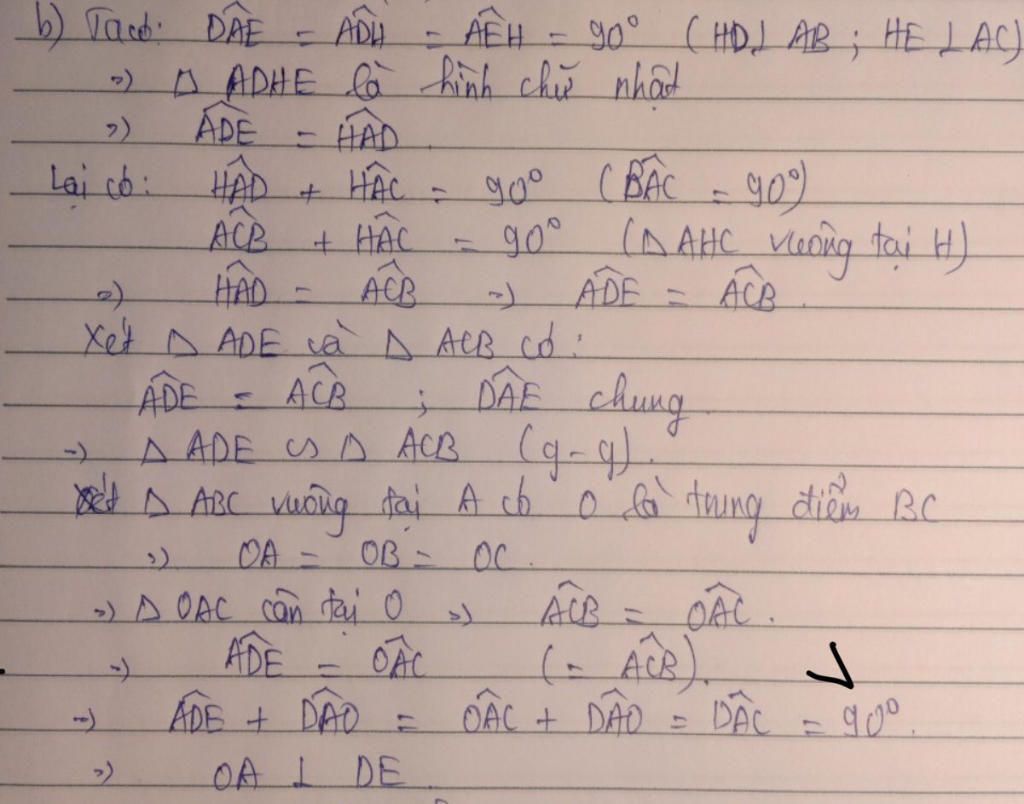 b) Ta có: D̂AE = ÂDH = ÂEH = 90° (HD⊥ AB ; HE ⊥ AC)
=) △ ADHE là hình chữ nhật
=) ÂDE = ĤAD.
Lại có: ĤAD + ĤAC = 90° (B̂AC = 90°)
ÂCB + ĤAC = 90° (△ AHC vuông tại H)
=) ĤAD = ÂCB =) ÂDE = ÂCB.
Xét △ ADE và △ ACB có:
ÂDE = ÂCB ; D̂AE chung
=) △ ADE ∽ △ ACB (g-g).
Xét △ ABC vuông tại A có O là trung điểm BC
=) OA = OB = OC.
=) △ OAC cân tại O =) ÂCB = ÔAC.
=) ÂDE = ÔAC (= ÂCB).
=) ÂDE + D̂AO = ÔAC + D̂AO = D̂AC = 90°.
=) OA ⊥ DE.